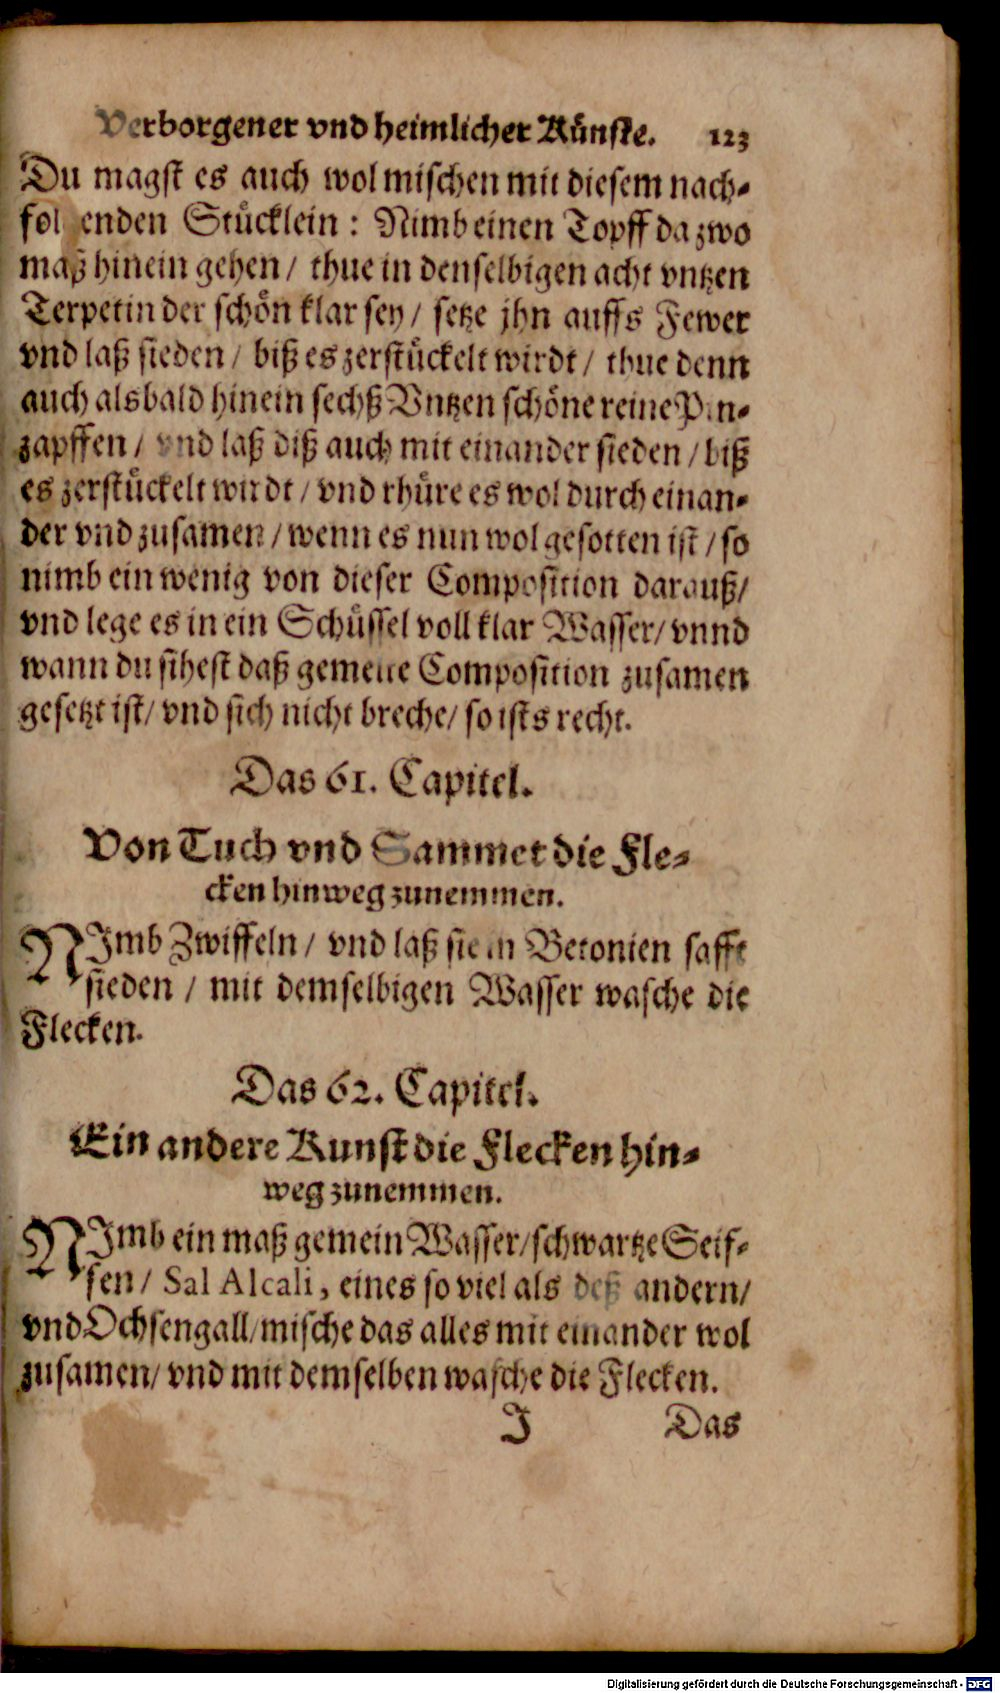 Verborgener vnd heimlicher Künste. 123
Du magst es auch wol mischen mit diesem nach-
folgenden Stücklein : Nimb einen Topff da zwo
maß hinein gehen / thue in denselbigen acht vntzen
Terpetin der schön klar sey / setze jhn auffs Fewer
vnd laß sieden / biß es zerstückelt wirdt / thue denn
auch alsbald hinein sechß Vntzen schöne reine Pin-
zapffen / vnd laß diß auch mit einander sieden / biß
es zerstückelt wirdt / vnd rhüre es wol durch einan-
der vnd zusamen / wenn es nun wol gesotten ist / so
nimb ein wenig von dieser Composition darauß /
vnd lege es in ein Schüssel voll klar Wasser / vnnd
wann du sihest daß gemelte Composition zusamen
gesetzt ist / vnd sich nicht breche / so ists recht.
Das 61. Capitel.
Von Tuch vnd Sammet die Fle-
cken hinweg zunemmen.
NImb Zwiffeln / vnd laß sie in Betonien safft
sieden / mit demselbigen Wasser wasche die
Flecken.
Das 62. Capitel.
Ein andere Kunst die Flecken hin-
weg zunemmen.
NImb ein maß gemein Wasser / schwartze Seif-
fen / Sal Alcali, eines so viel als deß andern /
vnd Ochsengall / mische das alles mit einander wol
zusamen / vnd mit demselben wasche die Flecken.
J Das
Digitalisierung gefördert durch die Deutsche Forschungsgemeinschaft - DFG